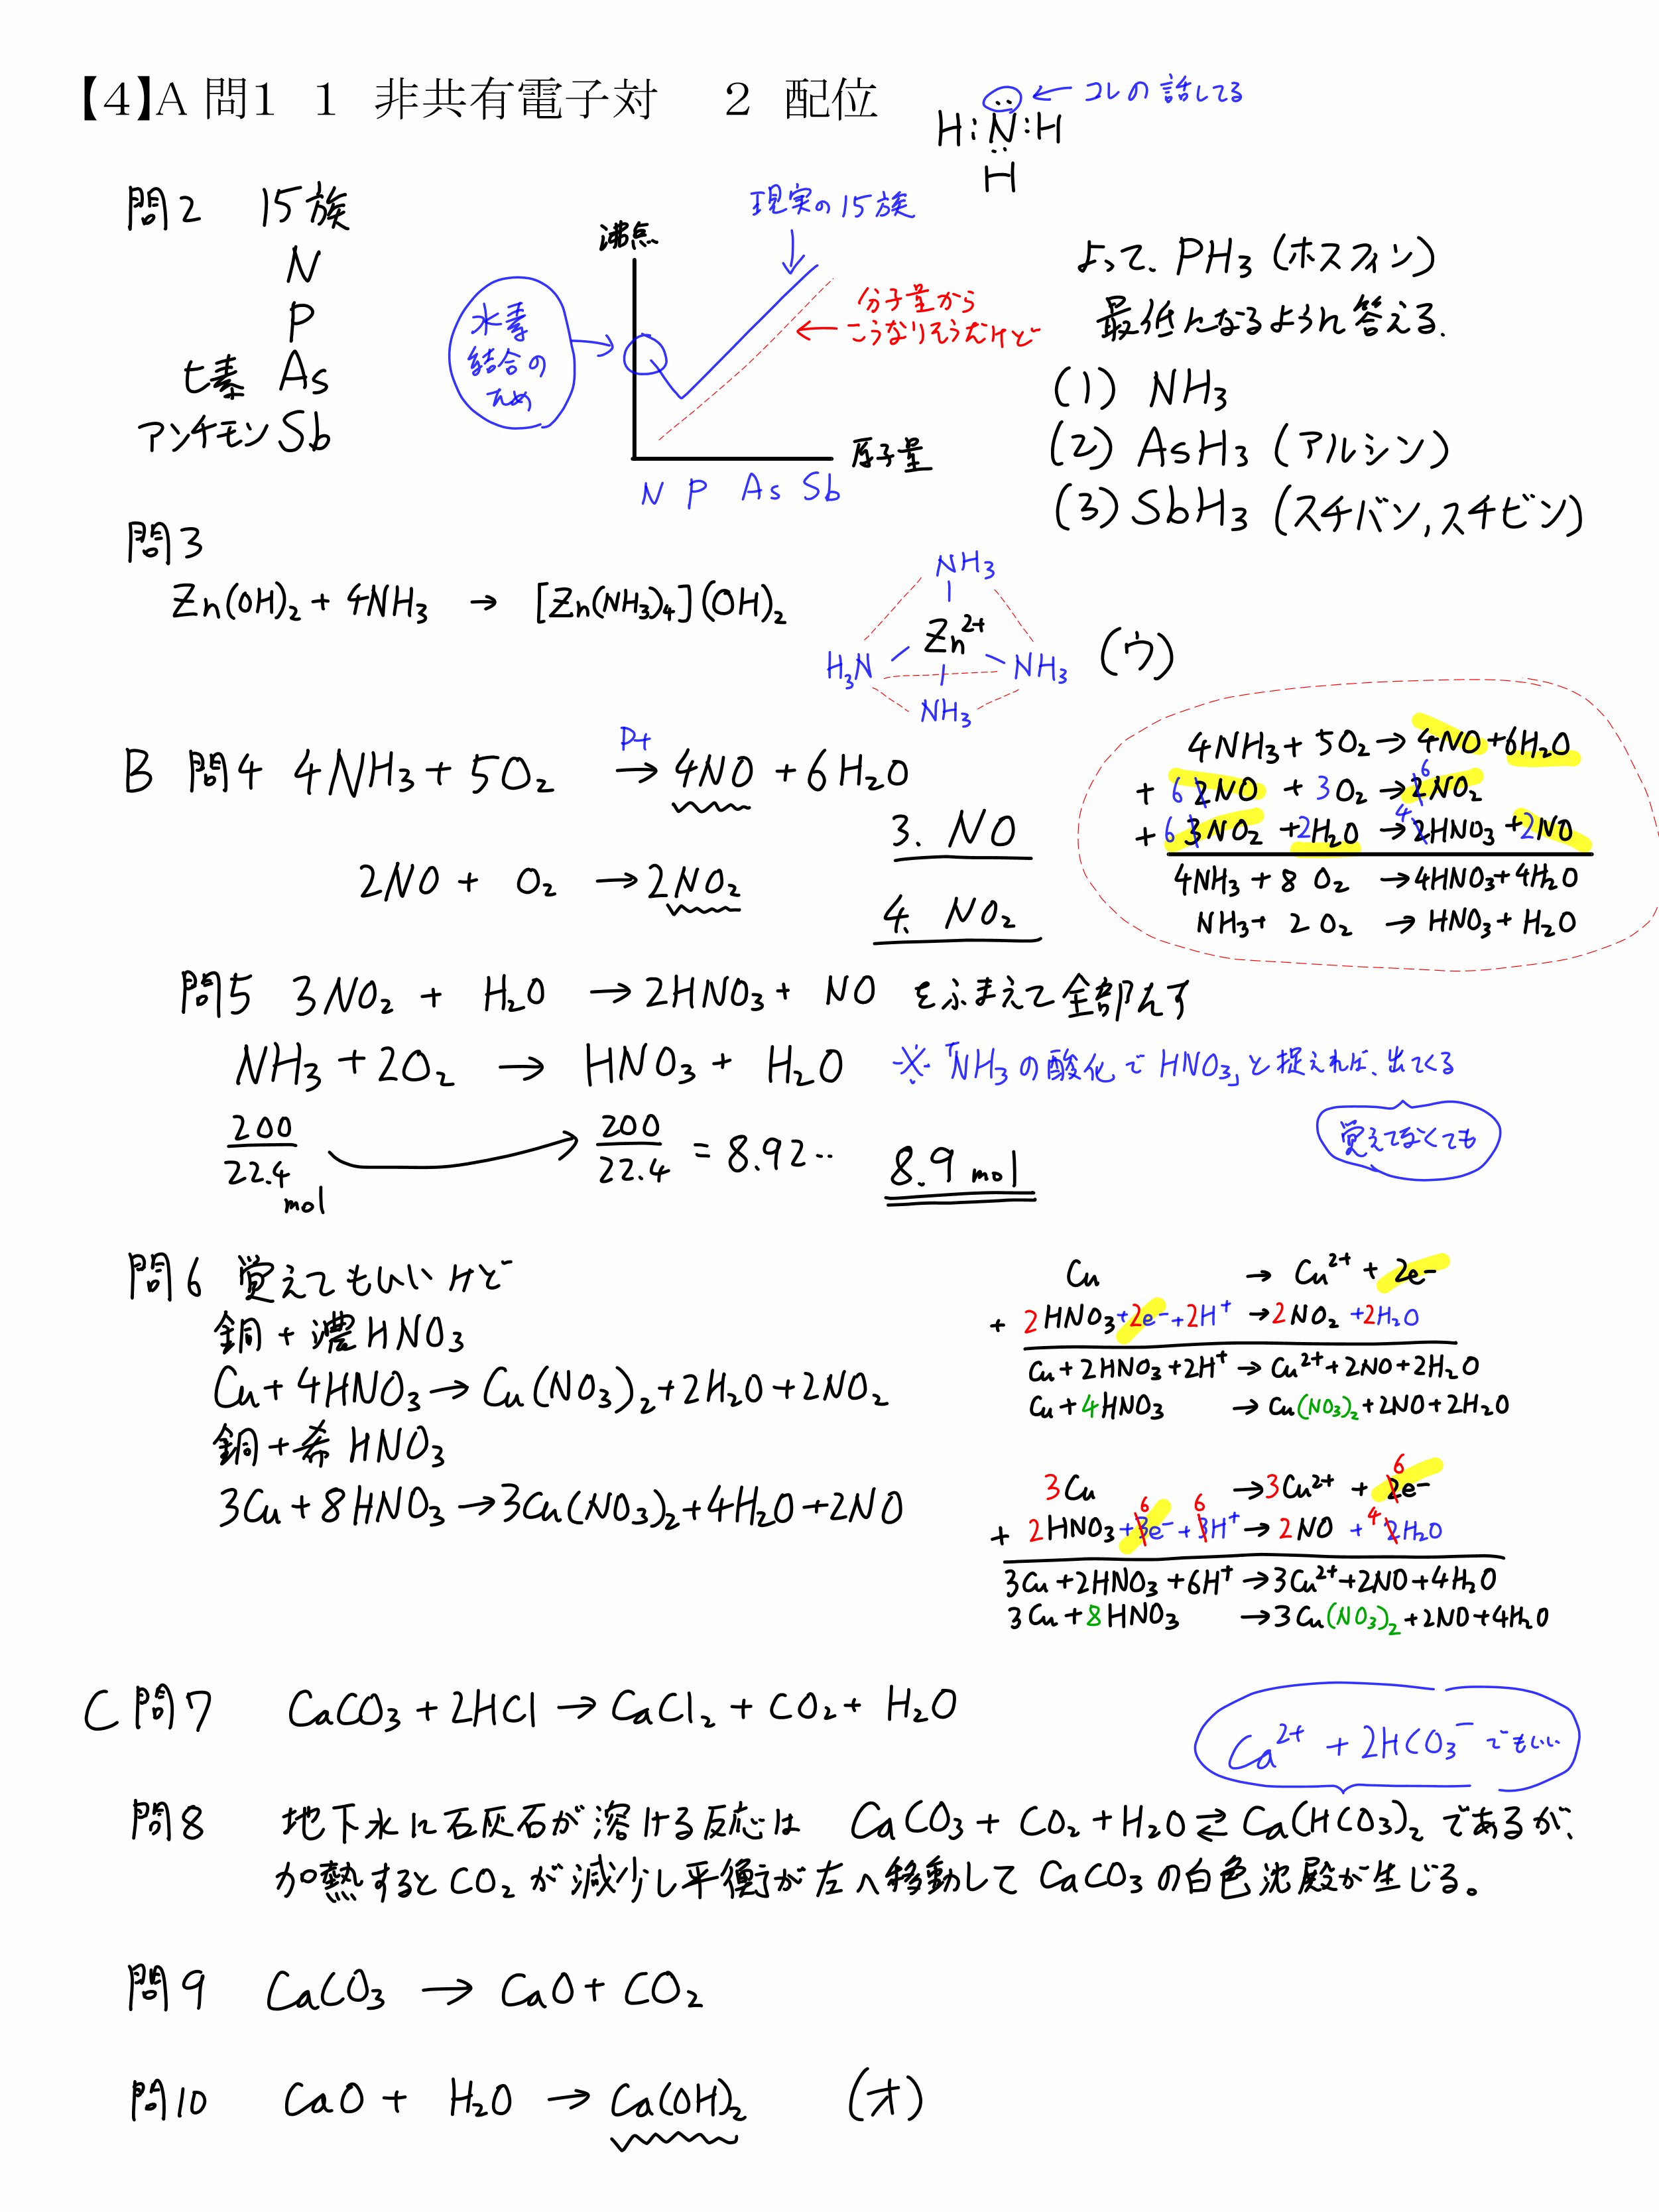 【4】A 問1 1 非共有電子対 2 配位
H:N:H
H
← コレの話してる
問2 15族
N
P
ヒ素 As
アンチモン Sb
水素
結合の
ため
沸点
現実の15族
分子量から
こうなりそうだけど
原子量
N P As Sb
よって、PH₃(ホスフィン)
最低になるように答える.
(1) NH₃
(2) AsH₃(アルシン)
(3) SbH₃(スチバン,スチビン)
問3
Zn(OH)₂ + 4NH₃ → [Zn(NH₃)₄](OH)₂
NH₃
Zn²⁺
H₃N NH₃
NH₃
(ウ)
B 問4 4NH₃ + 5O₂ → 4NO + 6H₂O
Pt
2NO + O₂ → 2NO₂
3. NO
4. NO₂
4NH₃ + 5O₂ → 4NO + 6H₂O
+ 6 2NO + 3O₂ → 6 2NO₂
+ 6 3NO₂ + 2H₂O → 4 2HNO₃ + 2NO
4NH₃ + 8 O₂ → 4HNO₃ + 4H₂O
NH₃ + 2 O₂ → HNO₃ + H₂O
問5 3NO₂ + H₂O → 2HNO₃ + NO をふまえて全部たす
NH₃ + 2O₂ → HNO₃ + H₂O ※「NH₃の酸化でHNO₃」と捉えれば、出てくる
覚えてなくても
200/22.4 mol 200/22.4 = 8.92‥ 8.9 mol
問6 覚えてもいいけど
銅+濃HNO₃
Cu + 4HNO₃ → Cu(NO₃)₂ + 2H₂O + 2NO₂
銅+希HNO₃
3Cu + 8HNO₃ → 3Cu(NO₃)₂ + 4H₂O + 2NO
Cu → Cu²⁺ + 2e⁻
+ 2HNO₃ + 2e⁻ + 2H⁺ → 2NO₂ + 2H₂O
Cu + 2HNO₃ + 2H⁺ → Cu²⁺ + 2NO + 2H₂O
Cu + 4HNO₃ → Cu(NO₃)₂ + 2NO + 2H₂O
3Cu → 3Cu²⁺ + 6 2e⁻
+ 2HNO₃ + 6 3e⁻ + 6 3H⁺ → 2NO + 4 2H₂O
3Cu + 2HNO₃ + 6H⁺ → 3Cu²⁺ + 2NO + 4H₂O
3Cu + 8HNO₃ → 3Cu(NO₃)₂ + 2NO + 4H₂O
C 問7 CaCO₃ + 2HCl → CaCl₂ + CO₂ + H₂O
Ca²⁺ + 2HCO₃⁻ でもいい
問8 地下水に石灰石が溶ける反応は CaCO₃ + CO₂ + H₂O ⇄ Ca(HCO₃)₂ であるが、
加熱するとCO₂が減少し平衡が左へ移動してCaCO₃の白色沈殿が生じる。
問9 CaCO₃ → CaO + CO₂
問10 CaO + H₂O → Ca(OH)₂ (オ)